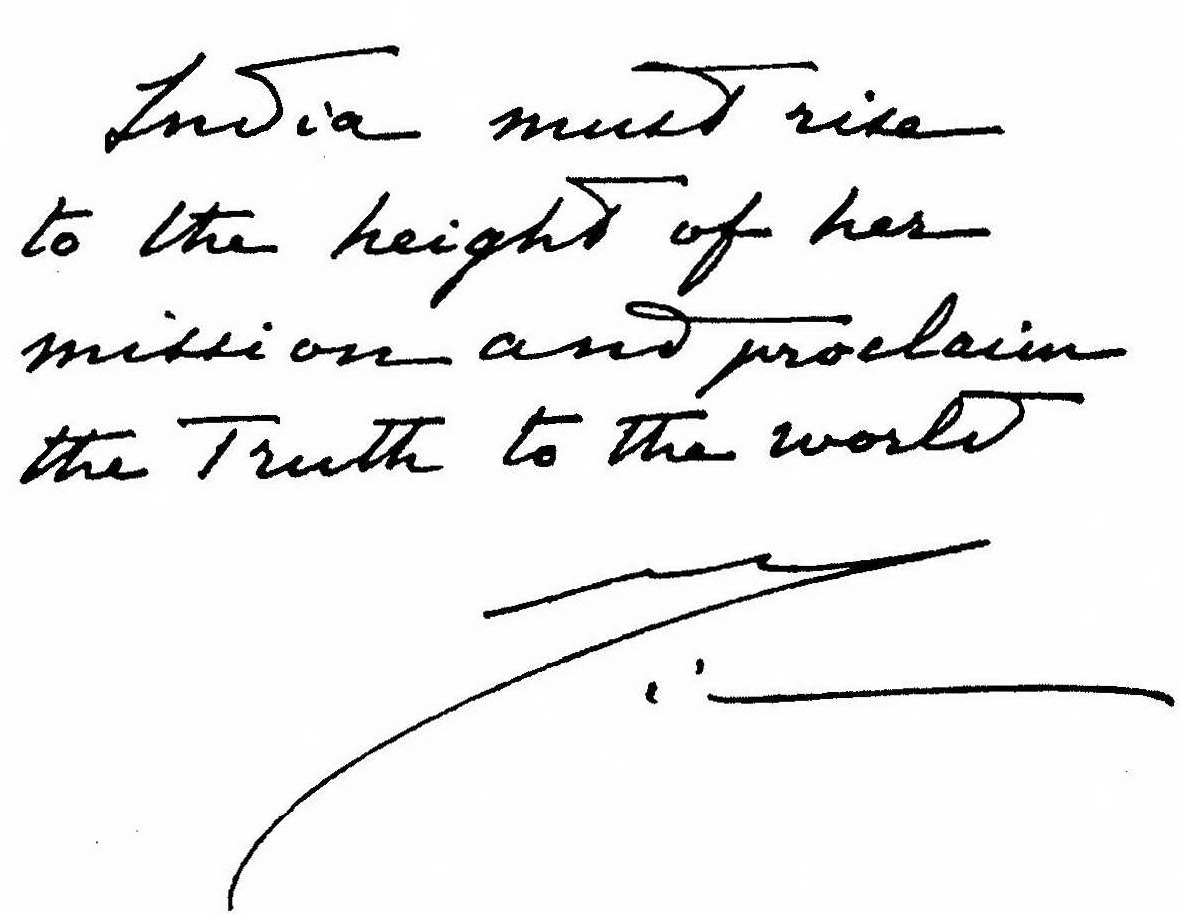 India must rise
to the height of her
mission and proclaim
the Truth to the world